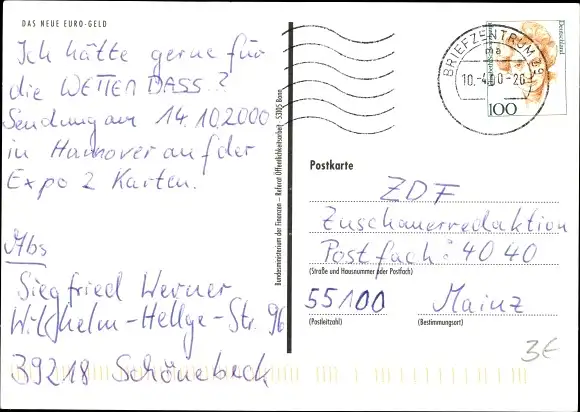 DAS NEUE EURO-GELD
Ich hätte gerne für
die WETTEN DASS..?
Sendung am 14.10.2000
in Hannover auf der
Expo 2 Karten.
Abs
Siegfried Werner
Wilhelm-Hellge-Str. 96
39218 Schönebeck
Bundesministerium der Finanzen – Referat Öffentlichkeitsarbeit – 53105 Bonn
BRIEFZENTRUM 39
ma
10.-4.00-20
Deutschland
100
Postkarte
ZDF
Zuschauerredaktion
Postfach: 4040
(Straße und Hausnummer oder Postfach)
55100 Mainz
(Postleitzahl) (Bestimmungsort)
3€